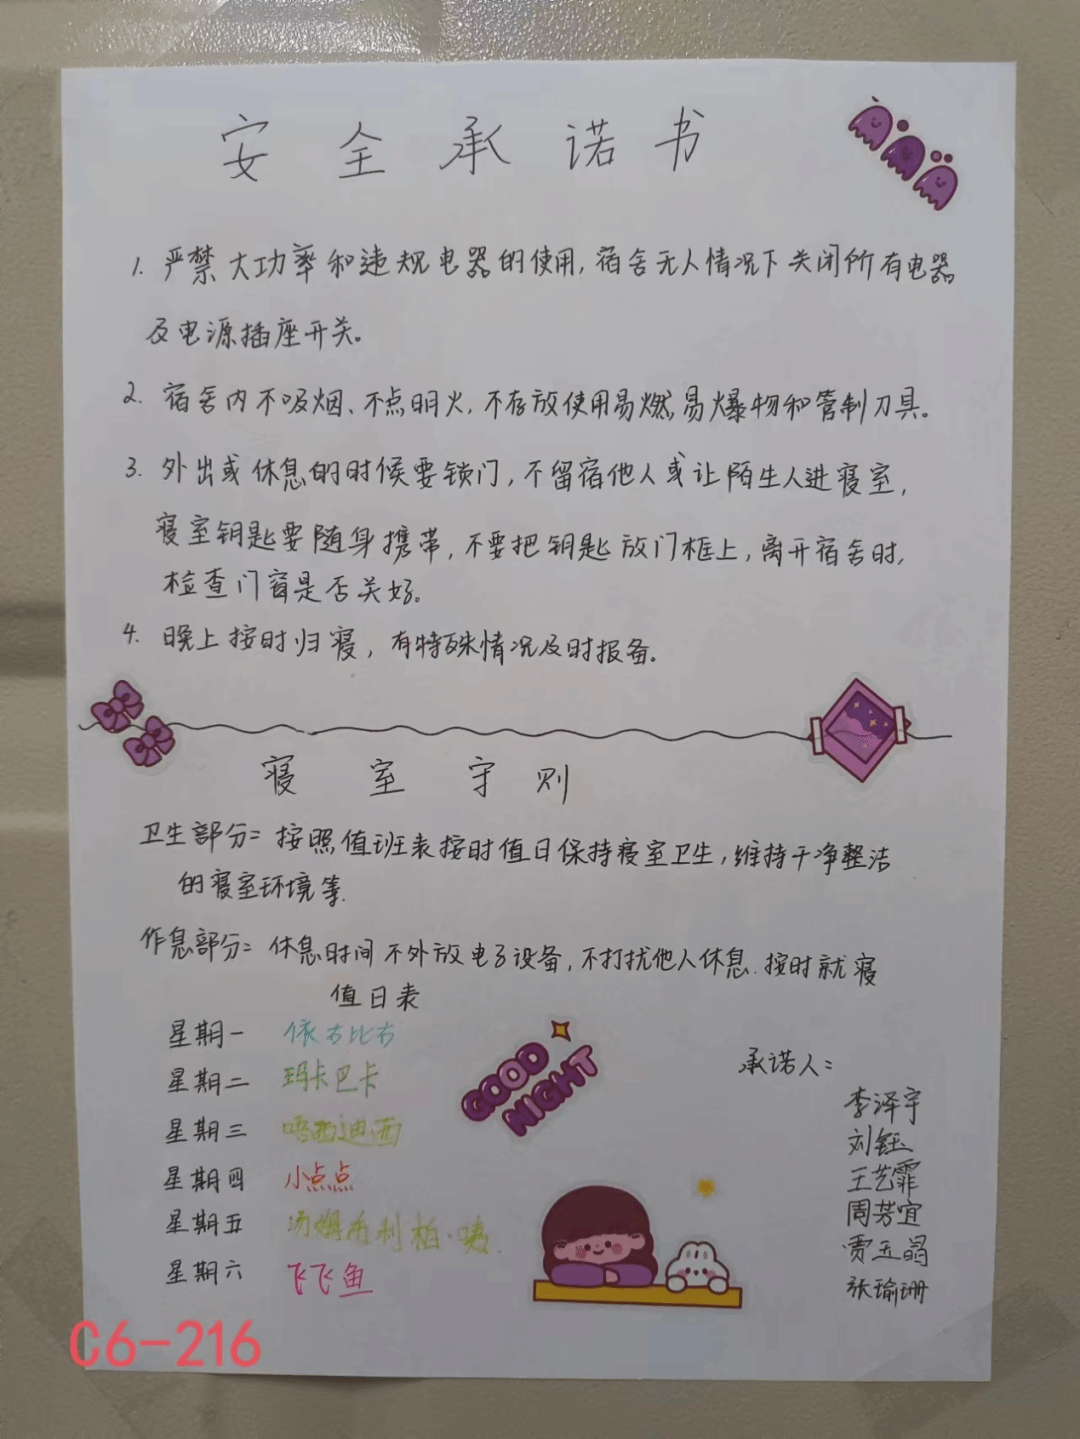 安全承诺书
1. 严禁大功率和违规电器的使用,宿舍无人情况下关闭所有电器
及电源插座开关。
2. 宿舍内不吸烟、不点明火,不存放使用易燃易爆物和管制刀具。
3. 外出或休息的时候要锁门,不留宿他人或让陌生人进寝室,
寝室钥匙要随身携带,不要把钥匙放门框上,离开宿舍时,
检查门窗是否关好。
4. 晚上按时归寝,有特殊情况及时报备。
寝室守则
卫生部分=按照值班表按时值日保持寝室卫生,维持干净整洁
的寝室环境等.
作息部分=休息时间不外放电子设备,不打扰他人休息.按时就寝
值日表
星期一 依古比古
星期二 玛卡巴卡
星期三 唔西迪西
星期四 小点点
星期五 汤姆布利柏·
星期六 飞飞鱼
GOOD
NIGHT
承诺人=
李泽宇
刘钰
王艺霏
周芳宜
贾五晶
张瑜珊
C6-216